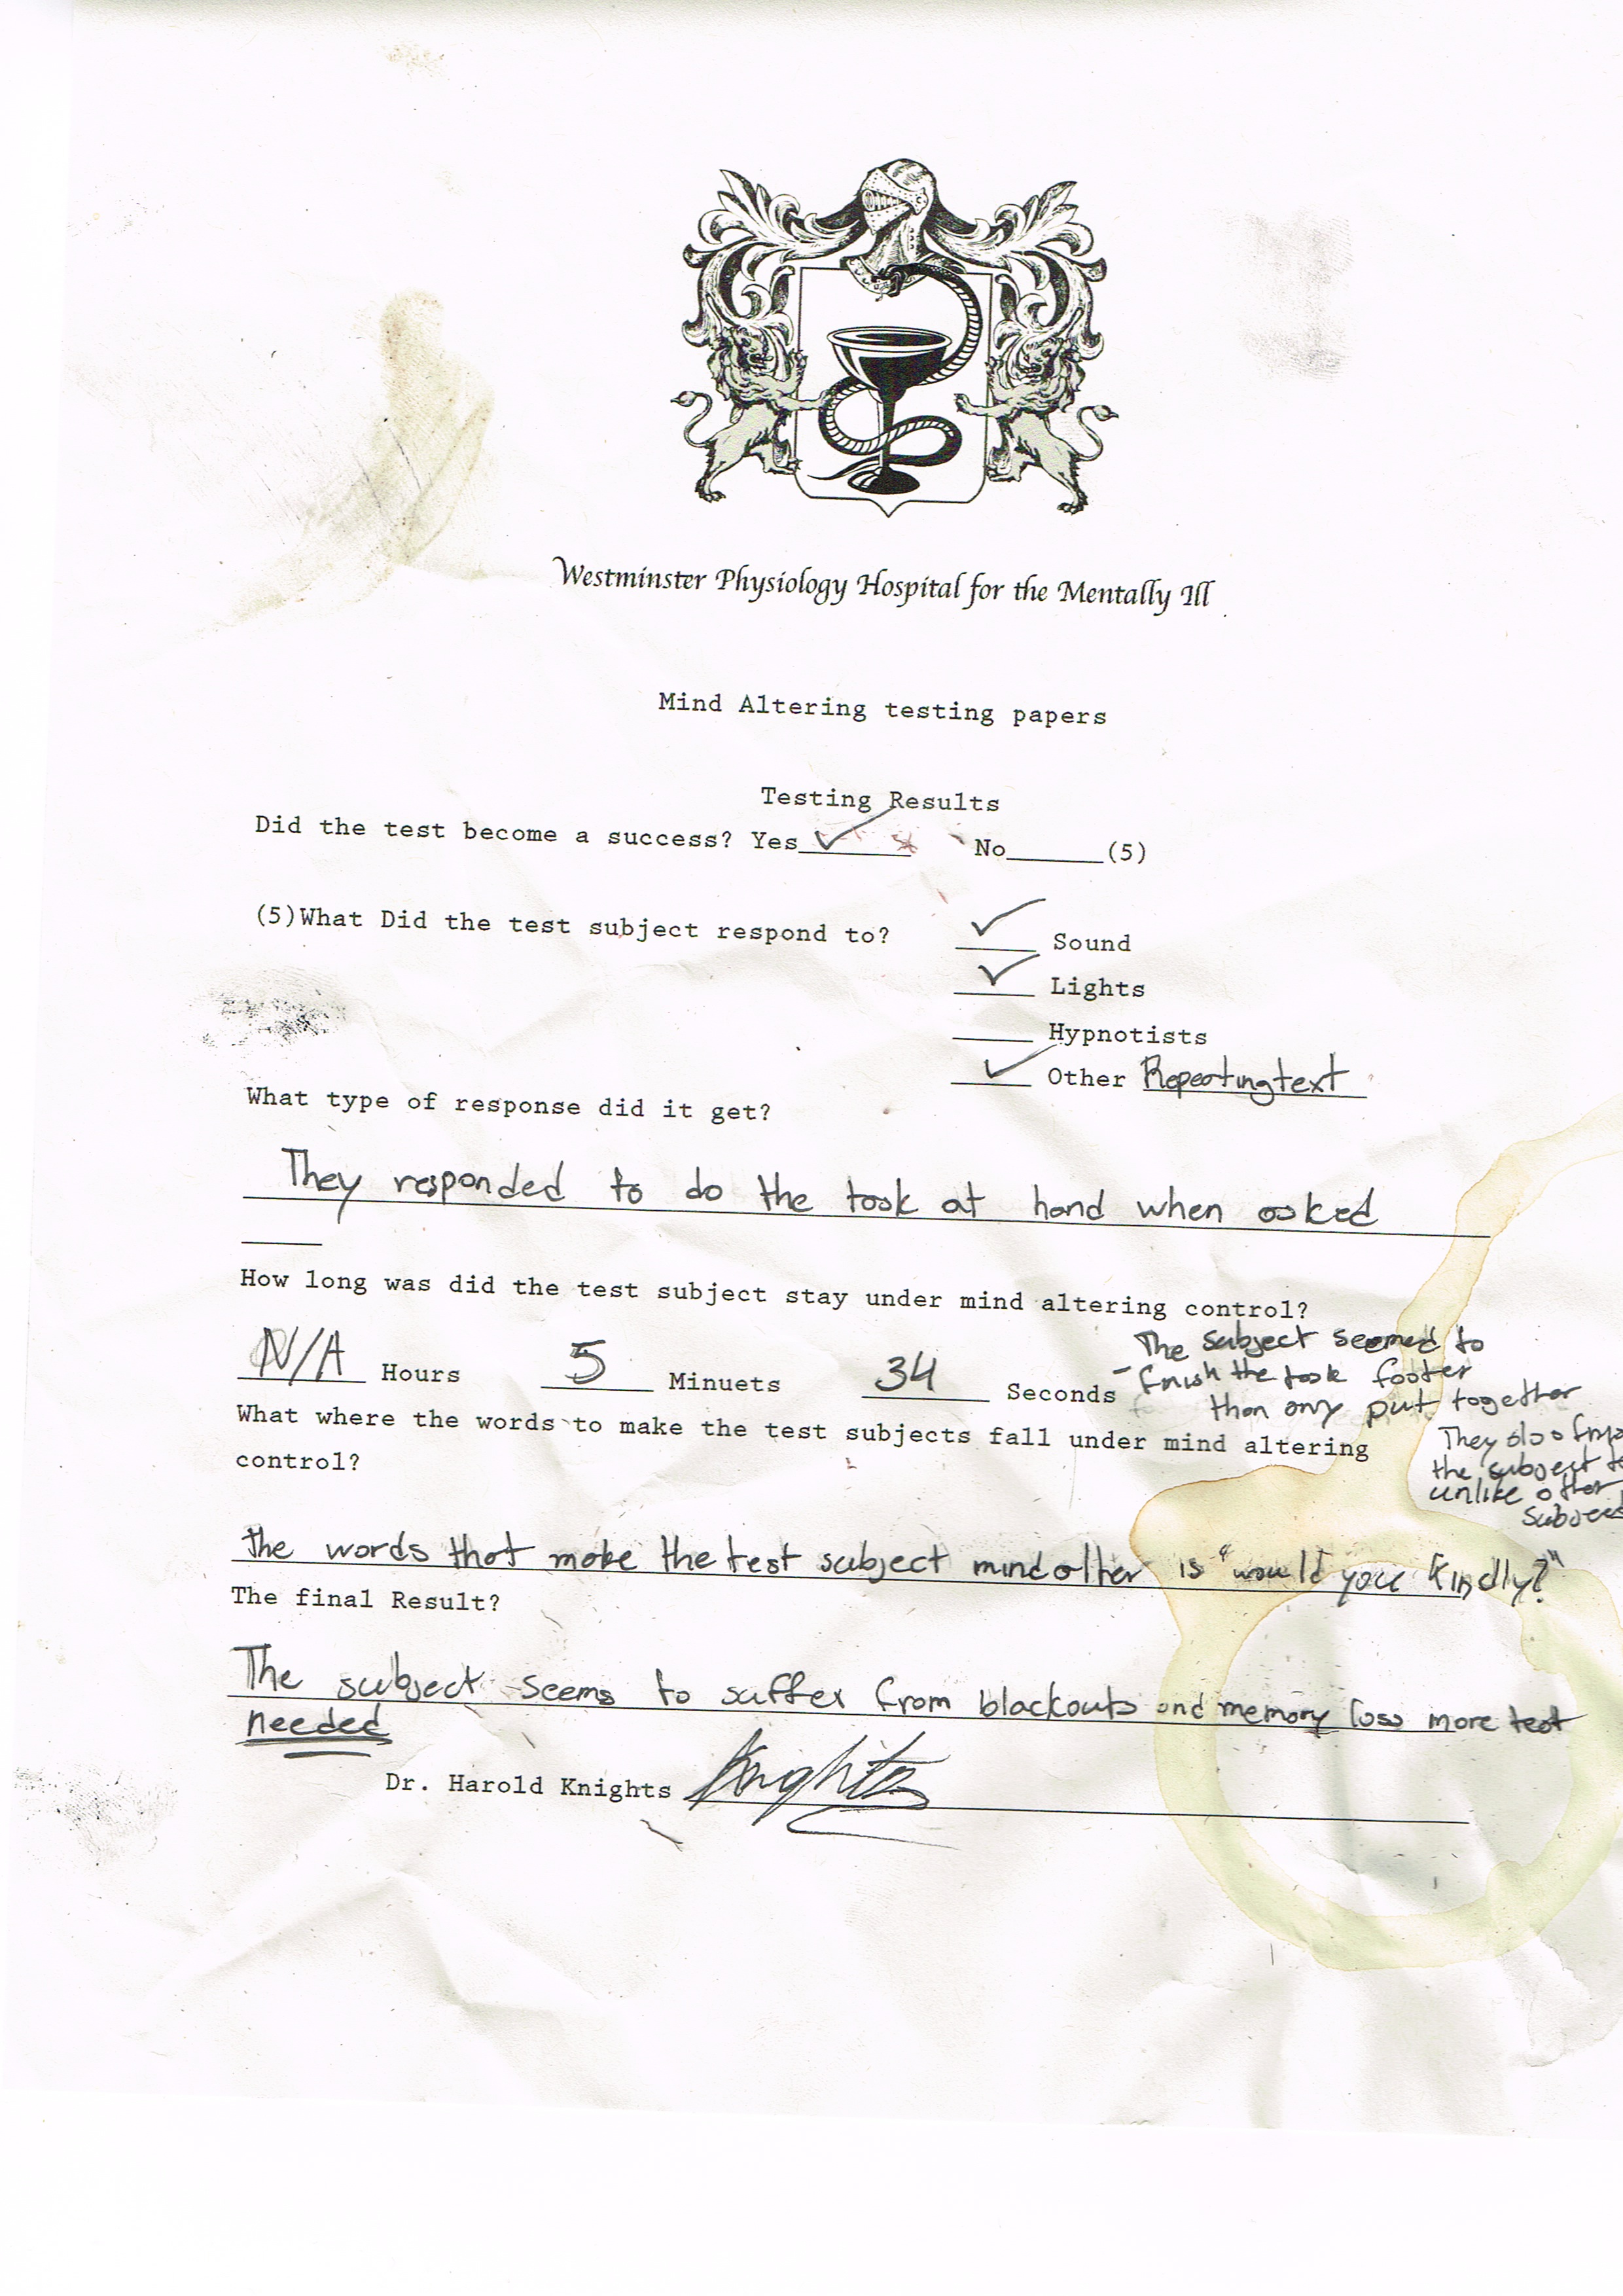 Westminster Physiology Hospital for the Mentally Ill
Mind Altering testing papers
Testing Results
Did the test become a success? Yes ✓ No (5)
(5)What Did the test subject respond to? ✓ Sound
✓ Lights
Hypnotists
✓ Other Repeating text
What type of response did it get?
They responded to do the task at hand when asked
How long was did the test subject stay under mind altering control?
N/A Hours 5 Minuets 34 Seconds
The subject seemed to
- finish the task faster
than any put together
They also
the subject
unlike other
What where the words to make the test subjects fall under mind altering
control?
the words that make the test subject mind alter is "would you kindly?"
The final Result?
The subject seems to suffer from blackouts and memory loss more test
needed
Dr. Harold Knights Knights